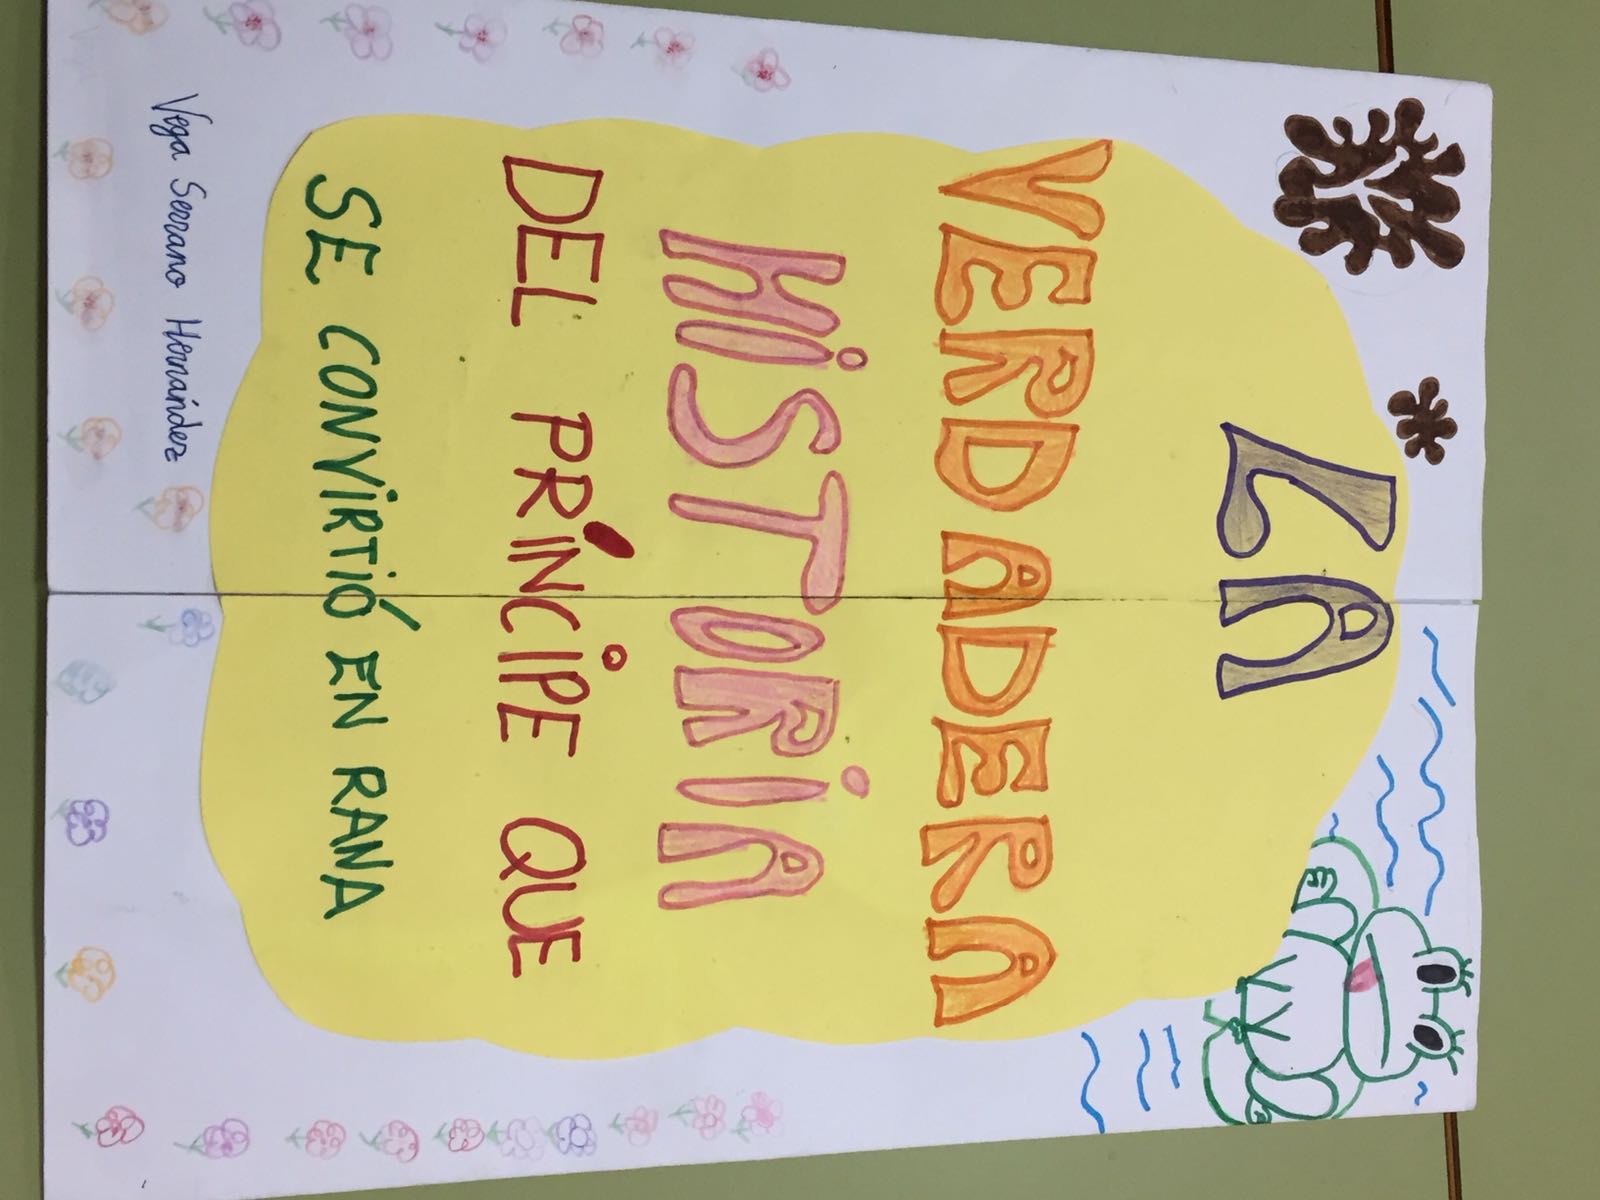 LA
VERDADERA
HiSTORiA
DEL PRÍNCIPE QUE
SE CONVIRTIÓ EN RANA
Vega Serrano Hernández